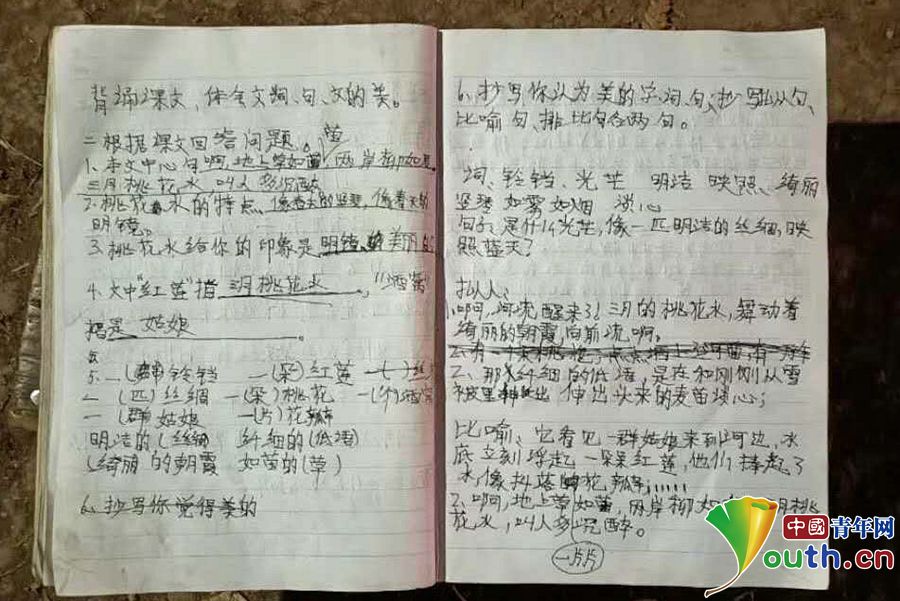 背诵课文，体会文词、句、文的美。
二根据课文回答问题。
茵
1、本文中心句啊，地上草如茵，两岸柳如眉
三月桃花水，叫人多沉醉
2、桃花水的特点 像春天的竖琴，像春天的
明镜。
3、桃花水给你的印象是 明镜 美丽
4、文中"红莲"指 三月桃花水 。"酒窝"
指是 姑娘 。
5、一(群)铃铛 一(朵)红莲 一( )丝
一(匹)丝绸 一(朵)桃花 一(个)酒窝
一(群)姑娘 一(片)花瓣
明洁的(丝绸) 纤细的(低语)
(绮丽)的朝霞 如茵的(草)
6、抄写你觉得美的
6、抄写你认为美的字、词、句；抄写拟人句、
比喻句、排比句各两句。
词、铃铛、光芒 明洁 映照、绮丽
竖琴 如雾如烟 谈心
句子：是什么光芒，像一匹明洁的丝绸，映
照蓝天？
拟人：
1、啊，河流醒来了！三月的桃花水，舞动着
绮丽的朝霞，向前流啊。
2、那纤细的低语，是在和刚刚从雪
被里伸出头来的麦苗谈心；
比喻、它看见一群姑娘来到河边，水
底立刻浮起一朵朵红莲，他们捧起了
水，像抖落花瓣；
2、啊，地上草如茵，两岸柳如眉，三月桃
花水，叫人多沉醉。
一片片
中國青年网
youth.cn